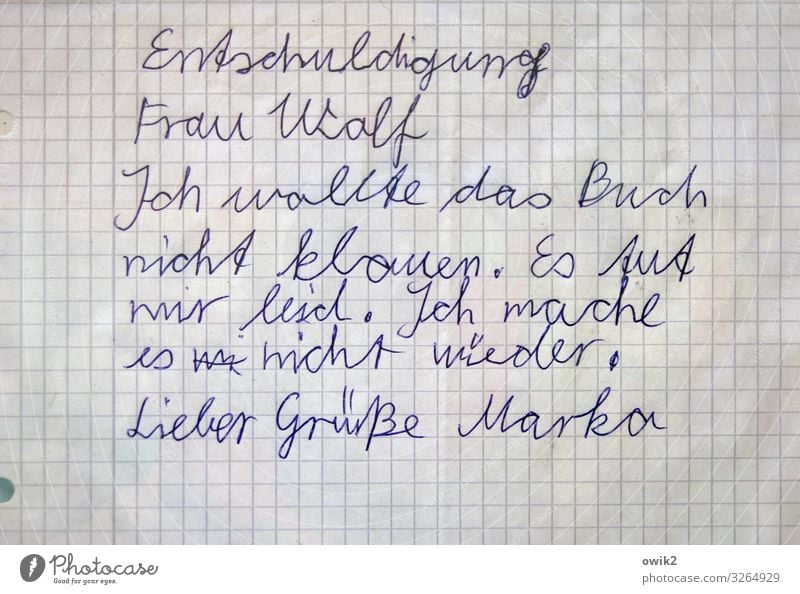 Entschuldigung
Frau Wolf
Ich wollte das Buch
nicht klauen. Es tut
mir leid. Ich mache
es nicht wieder.
Lieber Grüße Marka
Photocase
Good for your eyes.
owik2
# 3264929